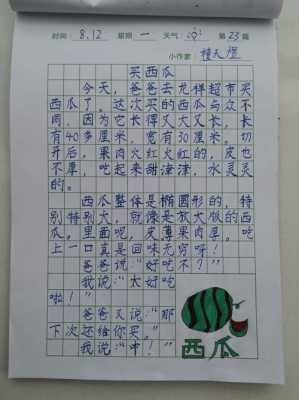 时间：8.12 星期 一 天气： 第 23 篇
小作家：檀天煜
买西瓜
今天，爸爸去龙祥超市买
西瓜了。这次买的西瓜与众不
同，因为它长得又大又长，长
有40多厘米，宽有30厘米。切
开后，果肉火红火红的，皮也
不厚，吃起来甜津津，水灵灵
的。
西瓜整体是椭圆形的，特
别特别大，就像是放大版的西
瓜。里面呢，皮薄果肉厚。吃
上一口真是回味无穷呀！
爸爸说：“好吃不？”
我说：“太好吃
啦！”
爸爸又说：“那
下次还给你买。”
我说：“中！”
西瓜